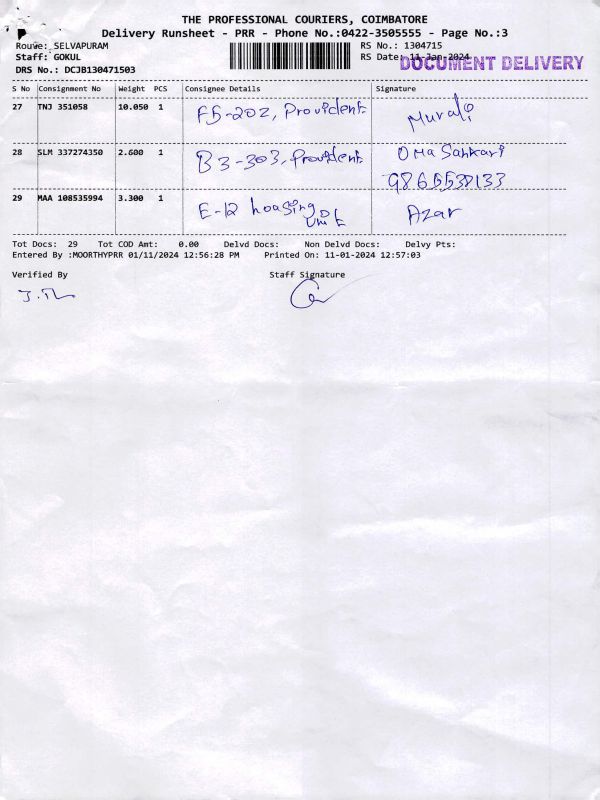 THE PROFESSIONAL COURIERS, COIMBATORE
Delivery Runsheet - PRR - Phone No.:0422-3505555 - Page No.:3
Route: SELVAPURAM RS No.: 1304715
Staff: GOKUL RS Date: 11-Jan-2024
DOCUMENT DELIVERY
DRS No.: DCJB130471503
S No Consignment No Weight PCS Consignee Details Signature
27 TNJ 351058 10.050 1 F5-202, Provident Murali
28 SLM 337274350 2.600 1 B3-303, Provident Oma Sankari
29 MAA 108535994 3.300 1 E-12 housing unit Azar
Tot Docs: 29 Tot COD Amt: 0.00 Delvd Docs: Non Delvd Docs: Delvy Pts:
Entered By :MOORTHYPRR 01/11/2024 12:56:28 PM Printed On: 11-01-2024 12:57:03
Verified By Staff Signature